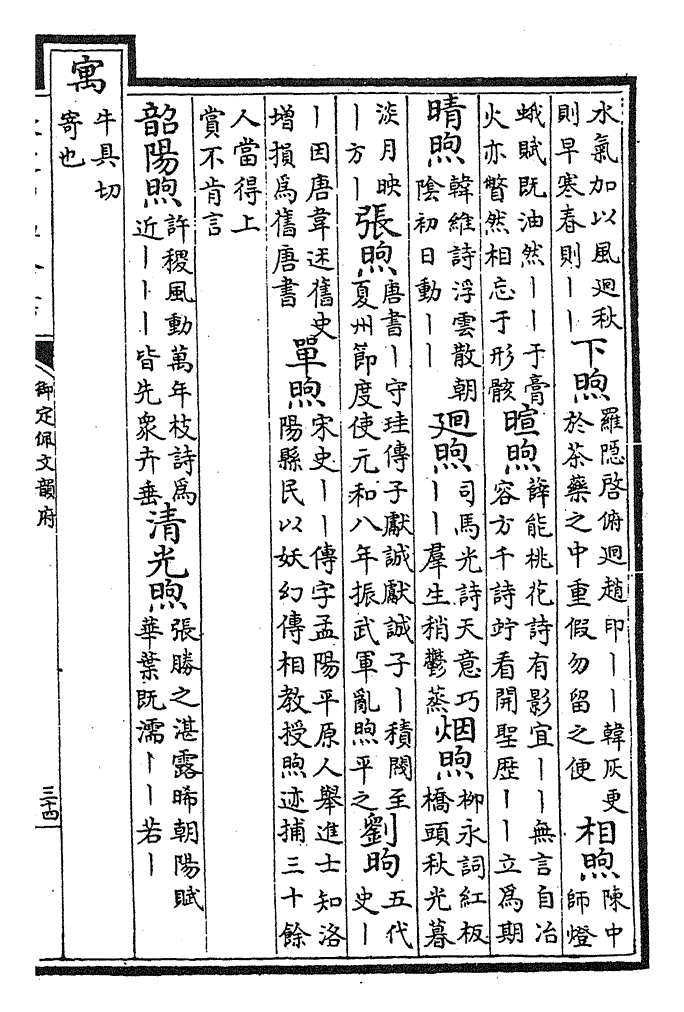 水氣加以風迴秋
則早寒春則丨丨
下煦
羅隱啓俯迴趙印丨丨韓灰更
於茶藥之中重假勿留之便
相煦
陳中
師燈
蛾賦既油然丨丨于膏
火亦瞥然相忘于形骸
暄煦
薛能桃花詩有影宜丨丨無言自冶
容方千詩竚看開聖歴丨丨立爲期
晴煦
韓維詩浮雲散朝
陰初日動丨丨
迴煦
司馬光詩天意巧
丨丨羣生稍鬱蒸
烟煦
柳永詞紅板
橋頭秋光暮
淡月映
丨方丨
張煦
唐書丨守珪傳子獻誠獻誠子丨積閥至
夏州節度使元和八年振武軍亂煦平之
劉昫
五代
史丨
丨因唐韋述舊史
增損爲舊唐書
單煦
宋史丨丨傳字孟陽平原人舉進士知洛
陽縣民以妖幻傳相教授煦迹捕三十餘
人當得上
賞不肯言
韶陽煦
許稷風動萬年枝詩爲
近丨丨丨皆先衆卉垂
清光煦
張勝之湛露晞朝陽賦
華葉既濡丨丨若丨
寓
牛具切
寄也
御定佩文韻府
三十四